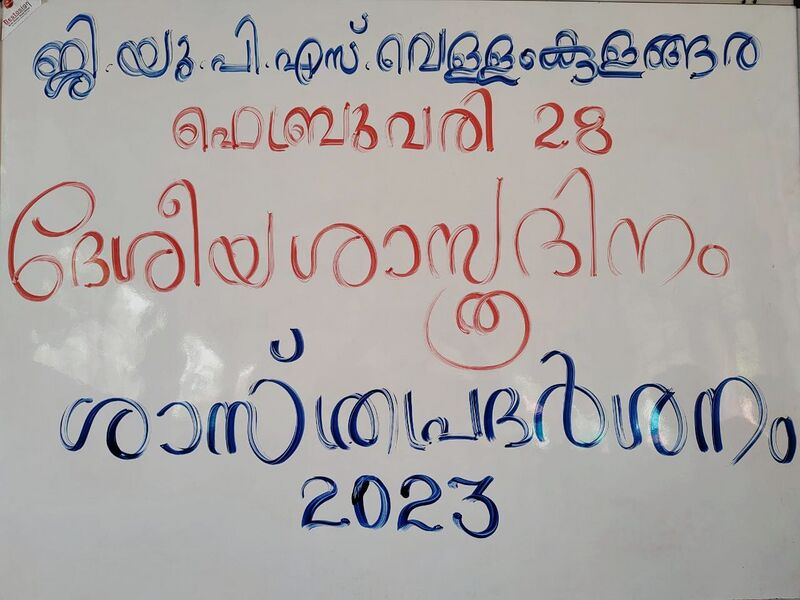 ജി.യു.പി.എസ്.വെള്ളംകുളങ്ങര
ഫെബ്രുവരി 28
ദേശീയ ശാസ്ത്രദിനം
ശാസ്ത്രപ്രദർശനം
2023